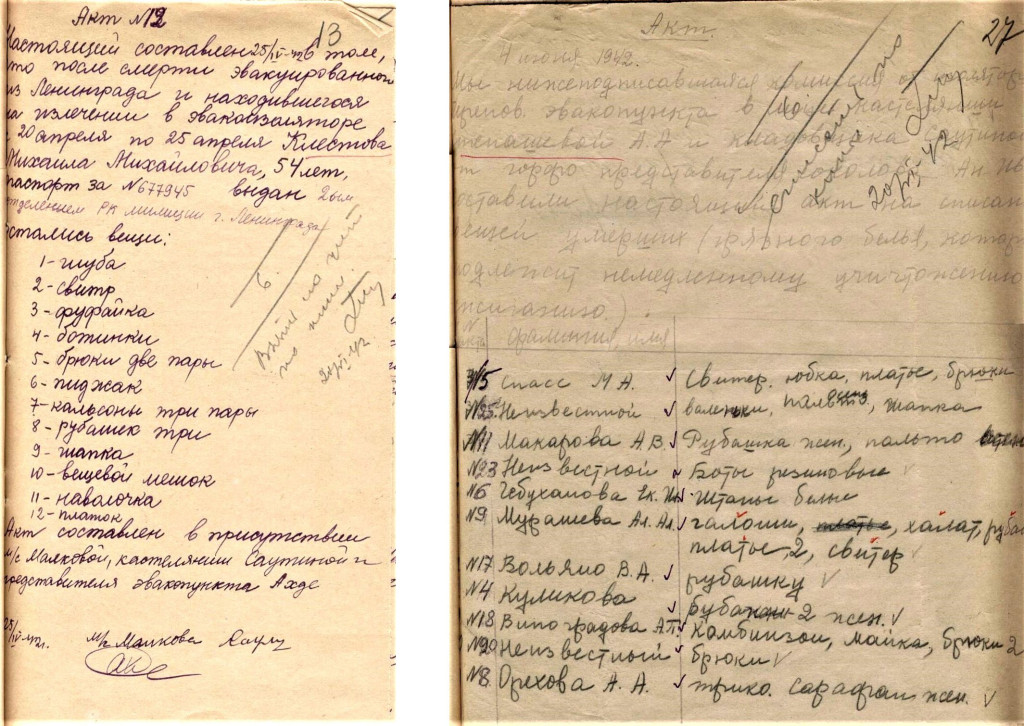 Акт №12
13
Настоящий составлен 25/IV-42 в том,
что после смерти эвакуированного
из Ленинграда и находившегося
на излечении в эвакоизоляторе
с 20 апреля по 25 апреля Клестова
Михаила Михайловича, 54 лет,
паспорт за №677945 выдан 2ым
отделением РК милиции г. Ленинграда
остались вещи:
1- шуба
2- свитр
3- фуфайка
4- ботинки
5- брюки две пары
6- пиджак
7- кальсоны три пары
8- рубашек три
9- шапка
10- вещевой мешок
11- наволочка
12- платок
Акт составлен в присутствии
м/с Маяковой, кастелянши Саутиной и
представителя эвакопункта Ахде
25/IV-42г.
м/с Маякова
27
Акт.
4 июня 1942г.
Мы нижеподписавшаяся комиссия от
эвакопункта в лице
А.А и кладовщика Саутиной
от горфо представителя
составили настоящий акт на списан
вещей умерших (грязного белья, котор
подлежит немедленному уничтожению
сжиганию).
фамилия, имя
№5 Спасс М А. Свитер. юбка, платье, брюки
Неизвестной валенки, пальто, шапка
№11 Макарова А.В. Рубашка жен., пальто
№23 Неизвестной Боты резиновые
№6 Чебуханова Ек. Штанье белье
№9 Мурашева Ал. Ал. галоши, платье, халат, рубаш
платье 2, свитер
№17 Вольяно В.А. рубашку
№4 Куликова 2 жен.
№18 Виноградова А.П. Комбинзон, майка, брюки 2
№20 Неизвестный брюки
№8 Орехова А. А. трико. сарафан жен.